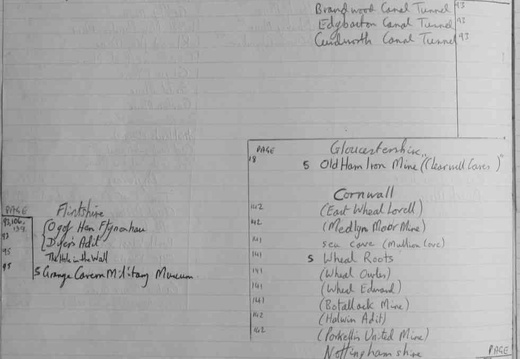 Brandwood Canal Tunnel 93
Edgbaston Canal Tunnel 93
Curdworth Canal Tunnel 93
PAGE Gloucestershire
18 S Old Ham Iron Mine (Clearwell Caves)
Cornwall
142 (East Wheal Lovell)
142 (Medlyn Moor Mine)
141 sea cave (Mullion Cove)
141 S Wheal Roots
141 (Wheal Owles)
141 (Wheal Edward)
141 (Botallack Mine)
142 (Halwin Adit)
142 (Porkellis United Mine)
Nottinghamshire PAGE
PAGE Flintshire
93,106, Ogof Hen Ffynonhau
93 Dyers Adit
95 The Hole in the Wall
95 S Grange Cavern Military Museum